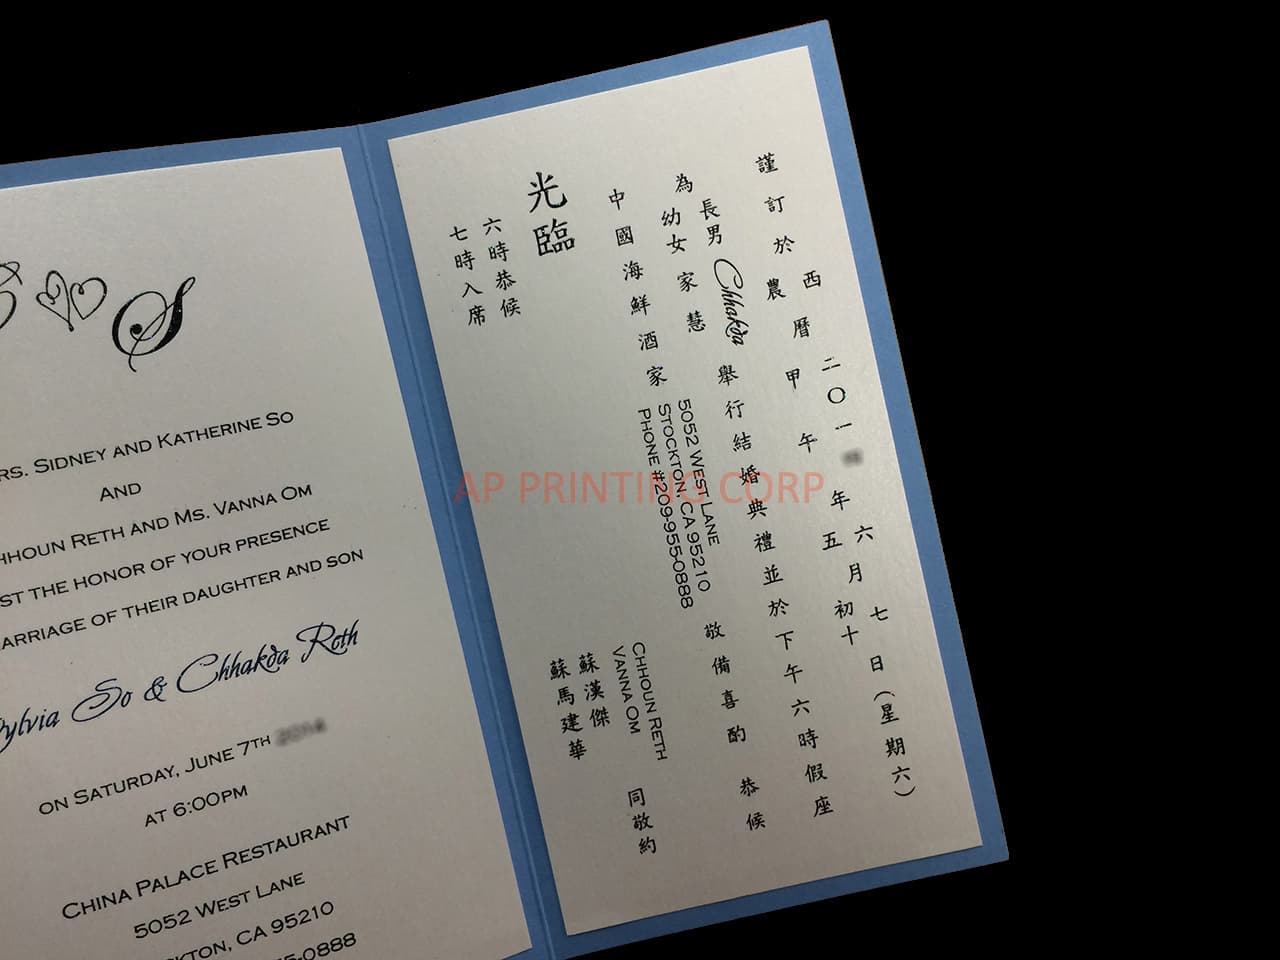 S
RS. SIDNEY AND KATHERINE SO
AND
HHOUN RETH AND MS. VANNA OM
ST THE HONOR OF YOUR PRESENCE
ARRIAGE OF THEIR DAUGHTER AND SON
ylvia So & Chhakda Reth
ON SATURDAY, JUNE 7TH
AT 6:00PM
CHINA PALACE RESTAURANT
5052 WEST LANE
CKTON, CA 95210
5-0888
謹訂於
西
農
曆
二〇一
年六月七日(星期六)
甲午年五月初十
為
長男 Chhakda
幼女家慧
舉行結婚典禮並於下午六時假座
中國海鮮酒家
5052 WEST LANE
STOCKTON, CA 95210
PHONE #209-955-0888
敬備喜酌 恭候
光臨
CHHOUN RETH
VANNA OM
蘇漢傑
蘇馬建華
同敬約
六時恭候
七時入席
AP PRINTING CORP